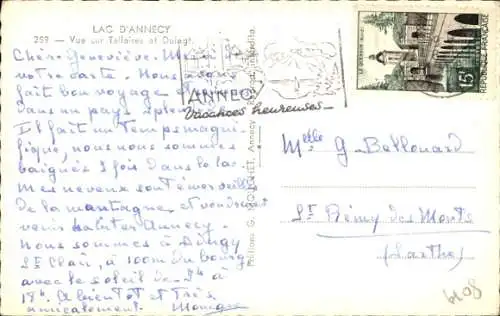 LAC D'ANNECY
259 — Vue sur Talloires et Duingt
Chère Geneviève. Merci de
votre carte. Nous avons
fait bon voyage et
dans un pays splendide
Il fait un temps magni-
fique, nous nous sommes
baignés 3 fois dans le lac.
Mes neveux sont émerveillés
de la montagne et voudraient
venir habiter Annecy.
Nous sommes à Dingy
St Clair, à 100m du bourg
avec le soleil de 9h à
18h. A bientôt et très
amicalement. Monique
ANNECY
Vacances heureuses
Editions G. Annecy
REPUBLIQUE FRANÇAISE
15F
Melle G Bellouard
St Rémy des Monts
(Sarthe)